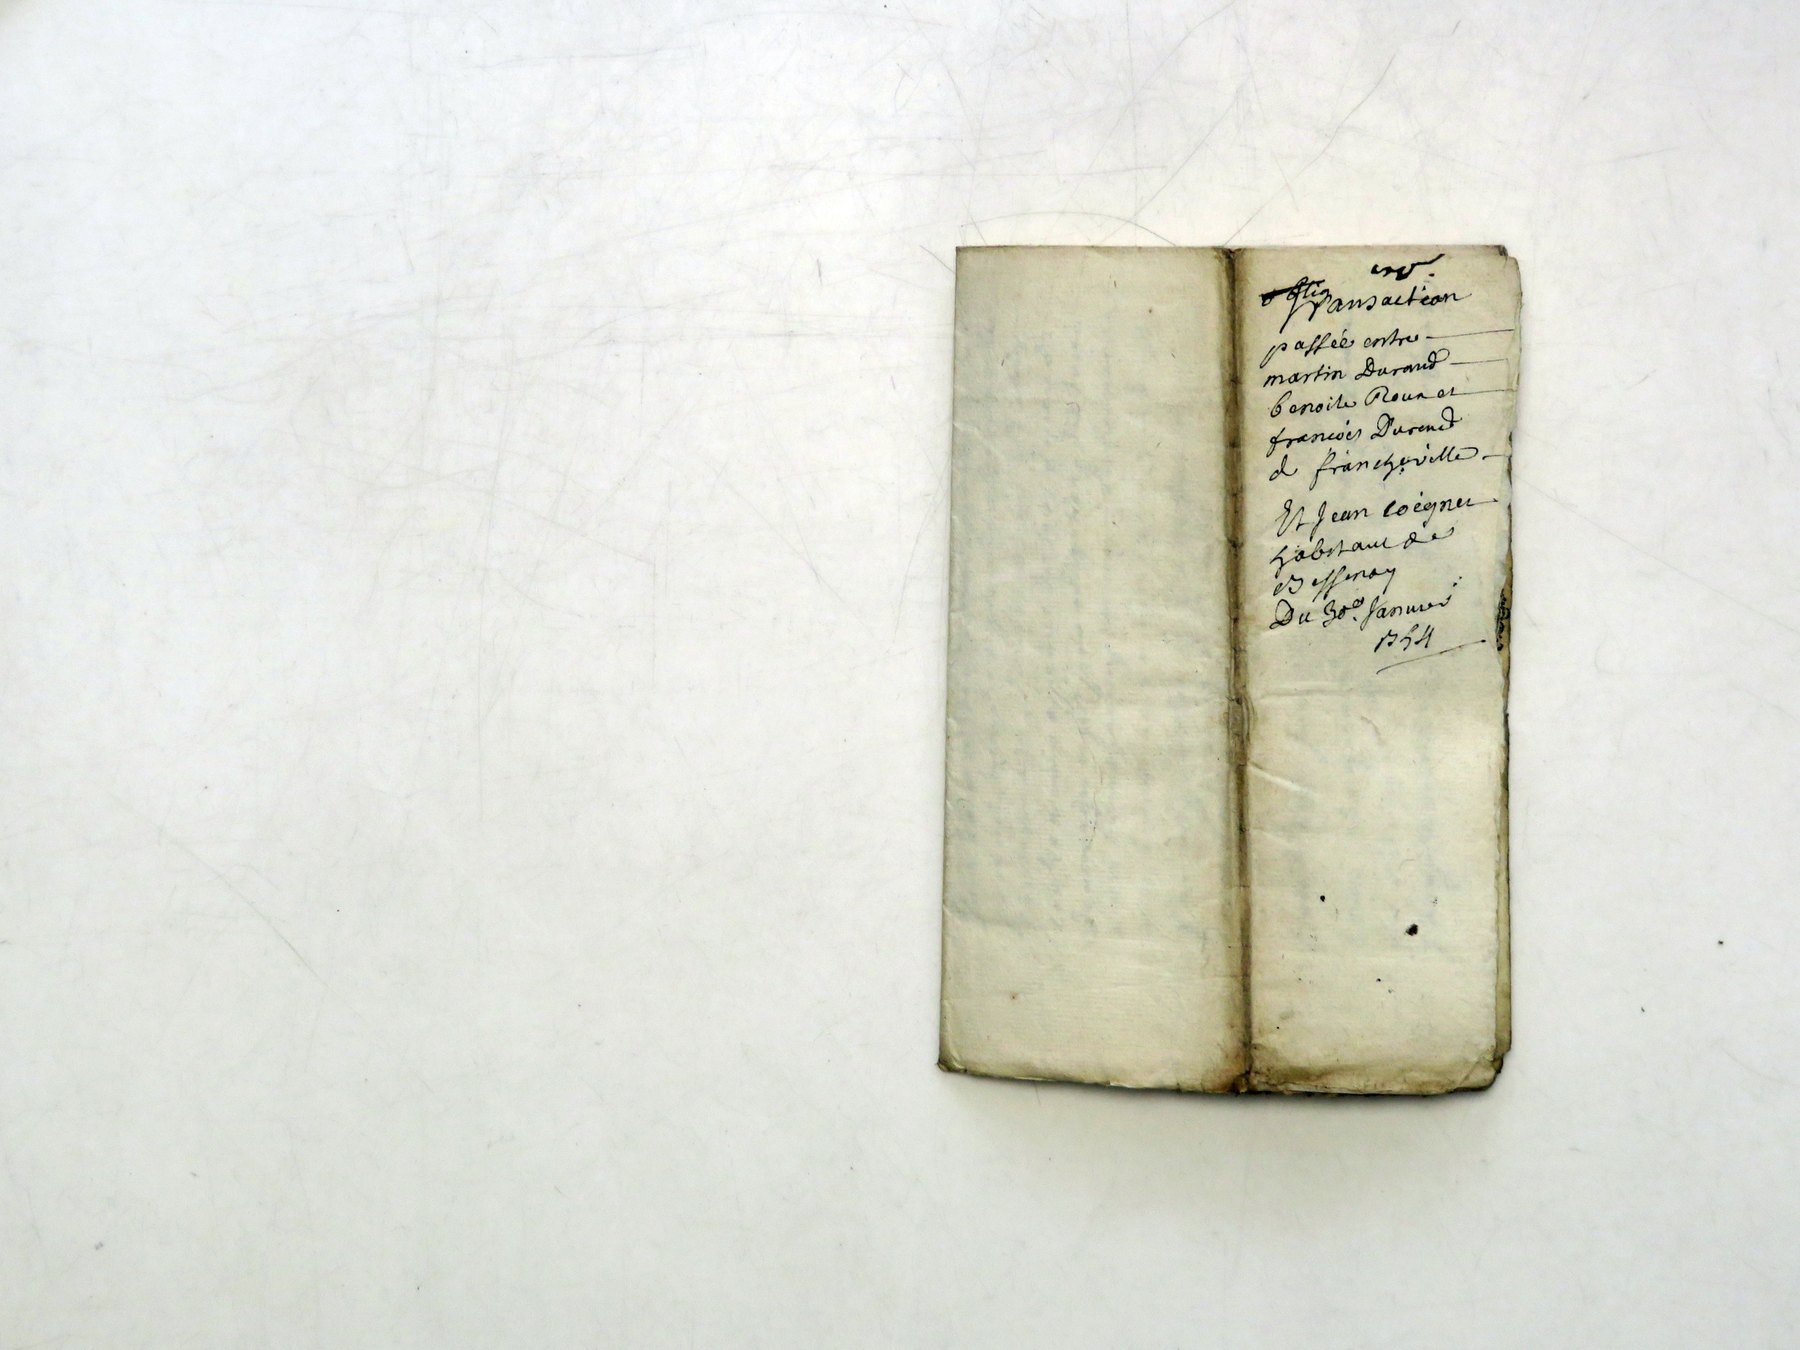 Transaction
passée entre
martin Durand
benoite Roux et
francois Durand
de francheville
Et Jean Coignet
habitant de
Bessenay
Du 30e. Janvier
1754